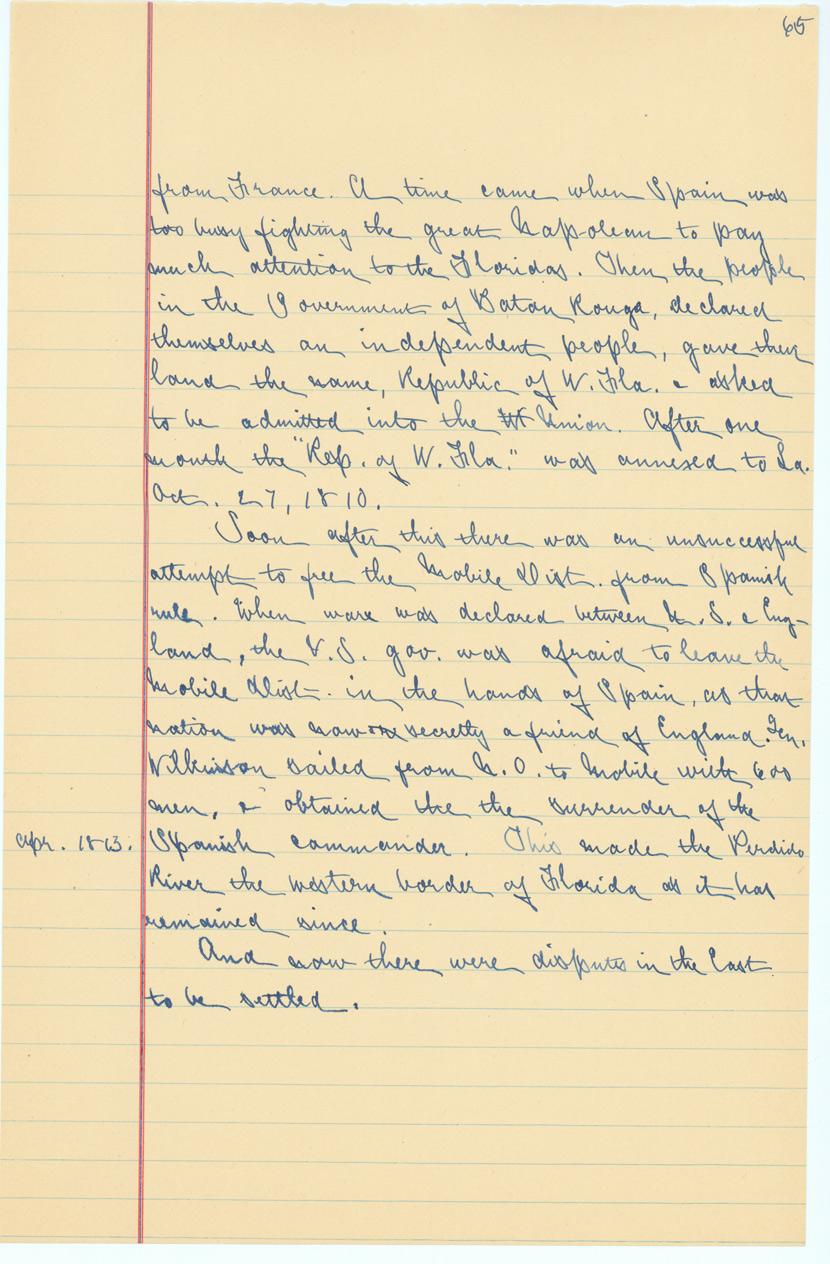 65
from France. A time came when Spain was
too busy fighting the great Napolean to pay
much attention to the Floridas. Then the people
in the Government of Baton Rouge, declared
themselves an independent people, gave their
land the name, Republic of W. Fla. & asked
to be admitted into the Union. After one
month the "Rep. of W. Fla." was annexed to La.
Oct. 27, 1810.
Soon after this there was an unsuccessful
attempt to free the Mobile Dist. from Spanish
rule. When ware was declared between U. S. & Eng-
land, the U.S. gov. was afraid to leave the
Mobile Dist. in the hands of Spain, as that
nation was now secretly a friend of England. Gen.
Wilkinson sailed from N.O. to Mobile with 600
men, & obtained the the surrender of the
Apr. 1813. Spanish commander. This made the Perdido
River the western border of Florida as it has
remained since.
And now there were disputes in the East
to be settled.